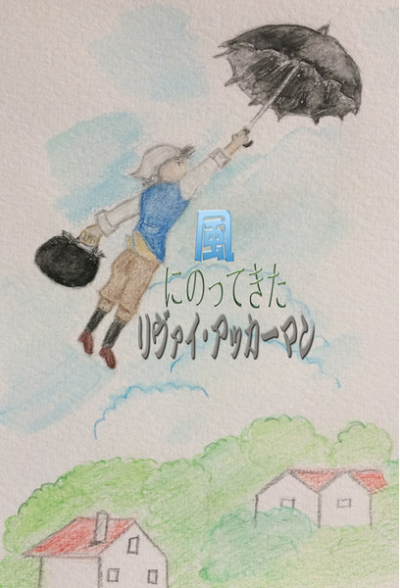 風
にのってきた
リヴァイ・アッカーマン